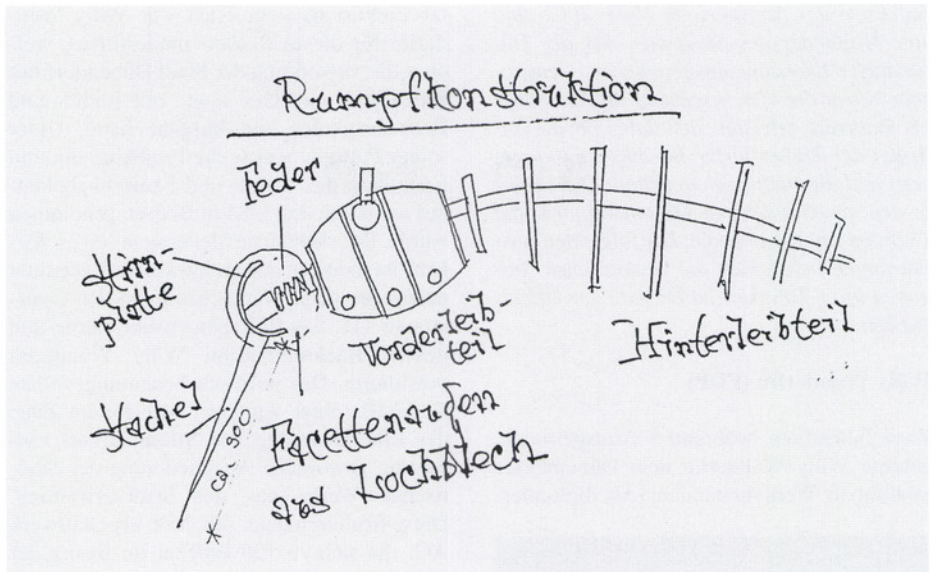 Rumpfkonstruktion
Feder
Stirn-
platte
Vorderleib-
teil
Hinterleibteil
Stachel
ca. 900
Facettenaugen
aus Lochblech